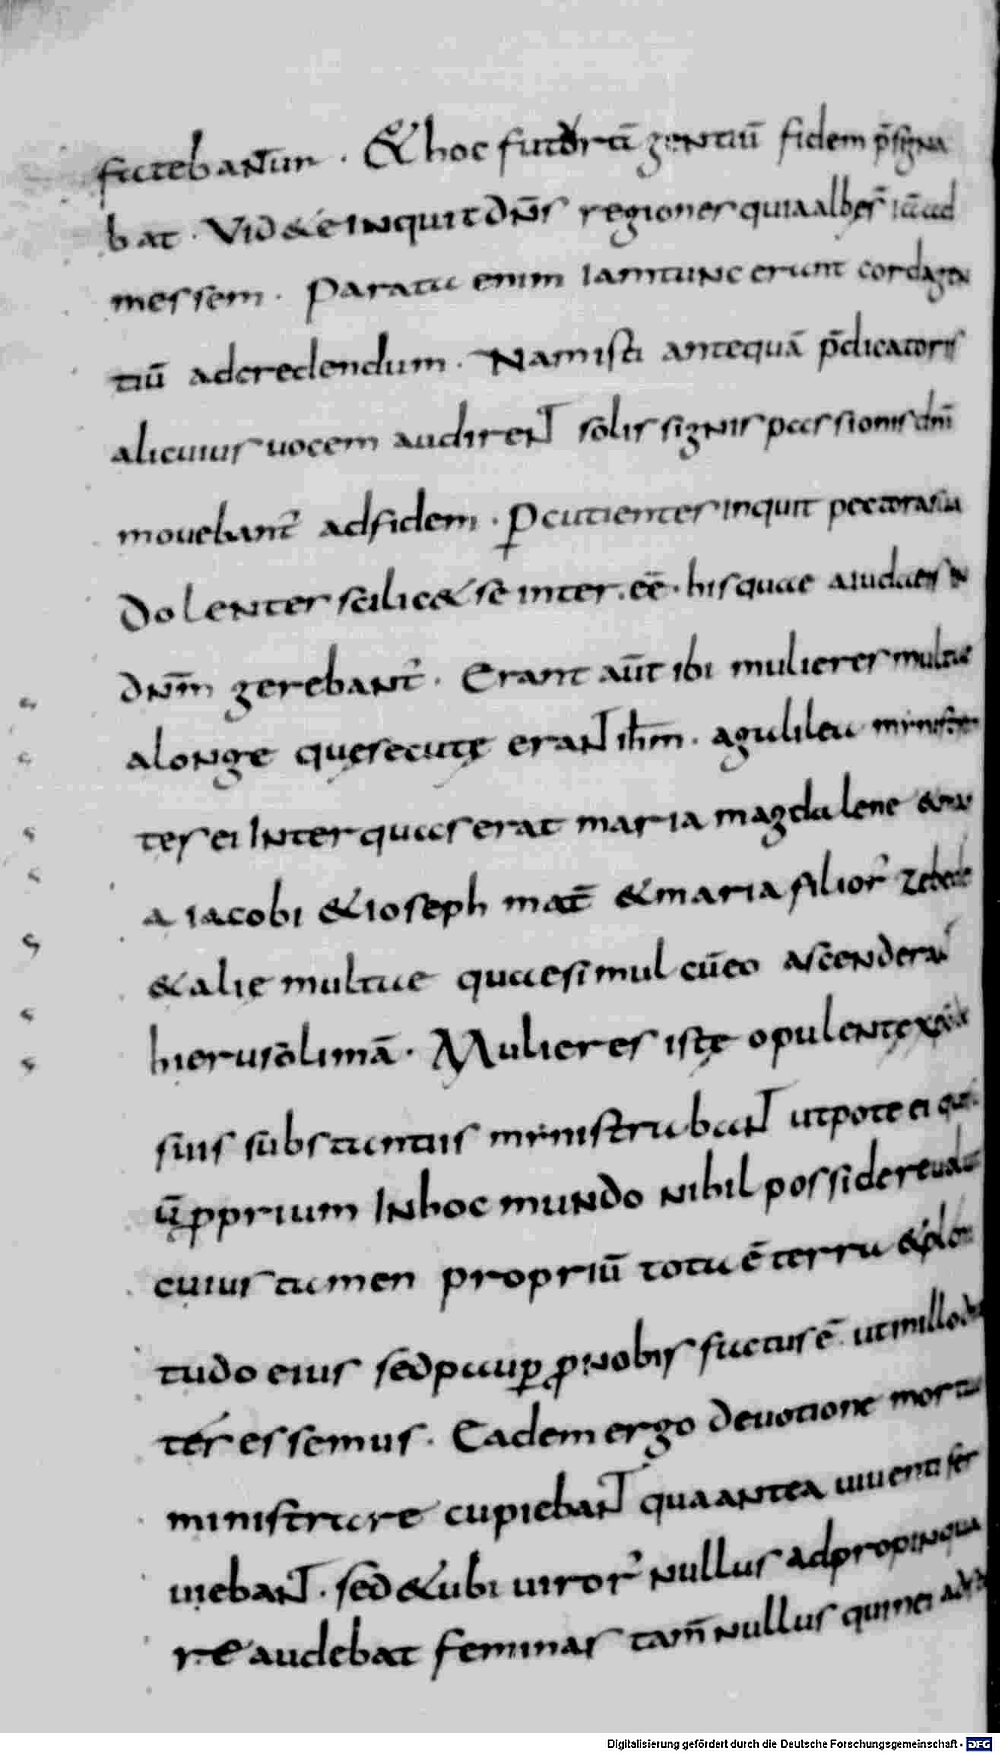 factebantur . & hoc futurā gentiū fidem p̄signa
bat . Vid&e inquit dn̄s regiones quia albę s̄ iā ad
messem . Parata enim iamtunc erunt corda gen
tiū adcredendum . Nam isti antequā p̄dicatoris
alicuius uocem audirent solis signis passionis dn̄i
mouebant᷒ adfidem . Pcutientes inquit pectora sua
Dolenter scilic& se inter . eē . his quae a iudaeis in
dn̄m gerebant᷒ . Erant aūt ibi mulieres multae
alonge quę secutę erant ih̄m . agalilea ministran
tes ei Inter quas erat maria magdalene & mari
a iacobi & ioseph mat̄ & maria filior᷒ zebedei
& alię multae quae simul cū eo ascenderant
hierusolimā . Mulieres istę opulentę xp̄o de
suis substantiis ministrabant utpote ei qui
ū pprium In hoc mundo nihil possidere uoluit
cuius tamen propriū tota ē terra & plen
tudo eius sed paup p nobis factus ē . ut nos illo di
tet᷒ essemus . Eadem ergo deuotione mortuo
ministrare cupiebant qua antea uiuenti ser
uiebant . sed & ubi uiror᷒ nullus adpropinqua
re audebat feminas tam̄ nullus qui mei
Digitalisierung gefördert durch die Deutsche Forschungsgemeinschaft - DFG